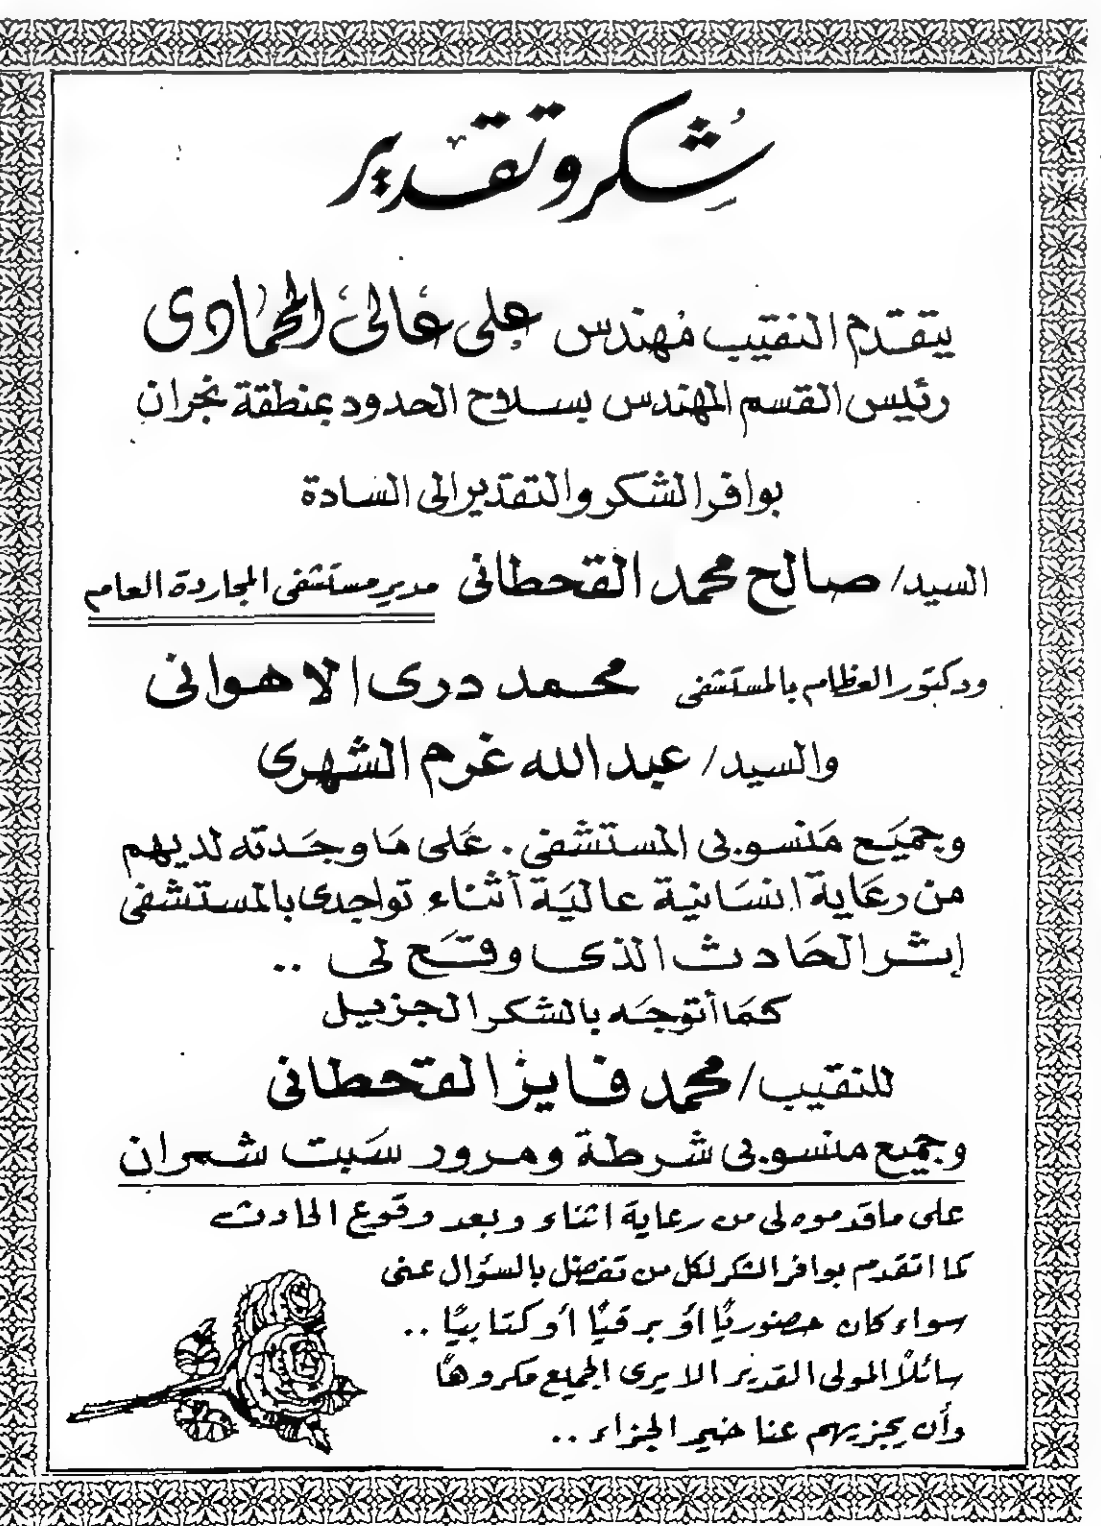 شكر وتقدير
يتقدم النقيب مهندس على غالى الحمادى
رئيس القسم المهندس بسلاح الحدود بمنطقة نجران
بوافر الشكر والتقدير الى السادة
السيد/ صالح محمد القحطانى مدير مستشفى المجاردة العام
ودكتور العظام بالمستشفى محمد درى الاهوانى
والسيد/ عبد الله غرم الشهرى
وجميَع مَنسوبى المستشفى . عَلى مَا وجَدته لديهم
من رعَاية انسَانية عاليَة أثناء تواجدى بالمستشفى
إثر الحَادث الذى وقَع لى ..
كمَا أتوجَه بالشكر الجزيل
للنقيب/ محمد فايز القحطانى
وجميع منسوبى شرطة ومرور سَبت شمران
على ماقدموه لى من رعاية اثناء وبعد وقوع الحادث
كما اتقدم بوافر الشكر لكل من تفضل بالسؤال عنى
سواء كان حضوريًا أو برقيًا أو كتابيًا ..
سائلاً المولى القدير الا يرى الجميع مكروهًا
وأن يجزيهم عنا خير الجزاء ..